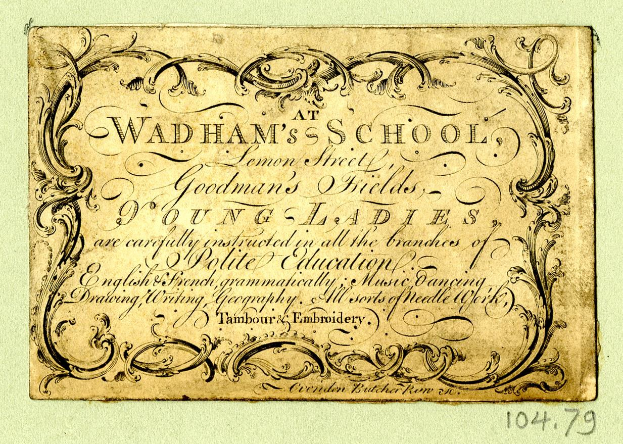 AT
WADHAM's SCHOOL,
Lemon Street,
Goodman's Fields,
YOUNG LADIES,
are carefully instructed in all the branches of
Polite Education,
English & French, grammatically; Music, Dancing
Drawing, Writing, Geography. All sorts of Needle Work,
Tambour & Embroidery.
Ovenden Butcher Row sc.
104.79